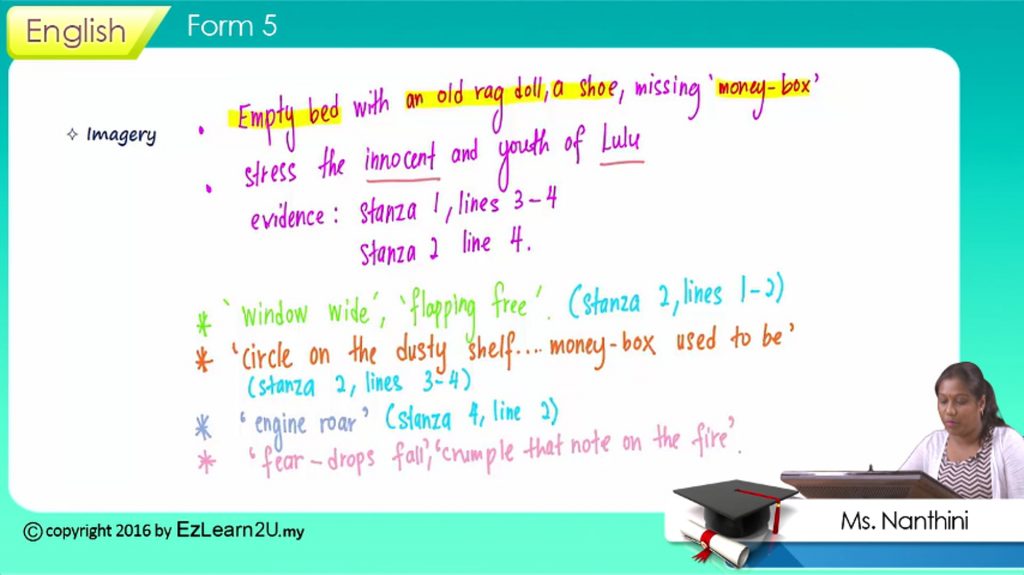 English
Form 5
✧ Imagery
• Empty bed with an old rag doll, a shoe, missing 'money-box'
• stress the innocent and youth of Lulu
evidence: stanza 1, lines 3-4
stanza 2 line 4.
* 'window wide', 'flapping free'. (stanza 2, lines 1-2)
* 'circle on the dusty shelf.... money-box used to be'
(stanza 2, lines 3-4)
* 'engine roar' (stanza 4, line 2)
* 'fear-drops fall', 'crumple that note on the fire'.
© copyright 2016 by EzLearn2U.my
Ms. Nanthini